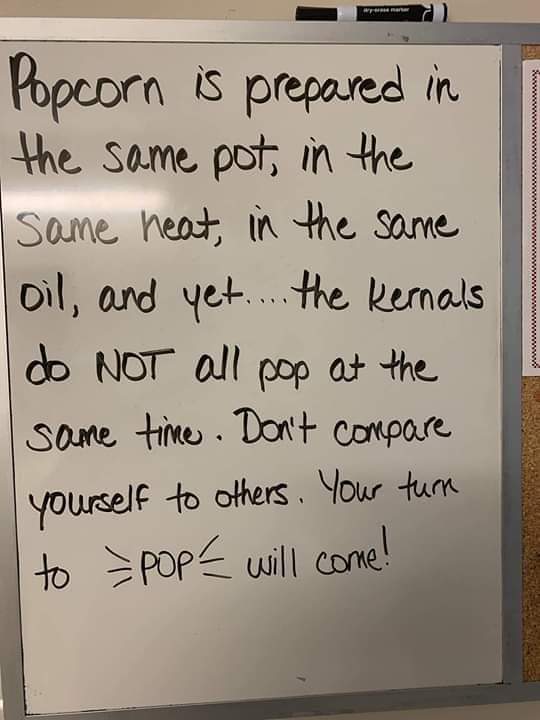 dry-erase marker
Popcorn is prepared in
the same pot, in the
same heat, in the same
oil, and yet.... the kernals
do NOT all pop at the
same time. Don't compare
yourself to others. Your turn
to POP will come!